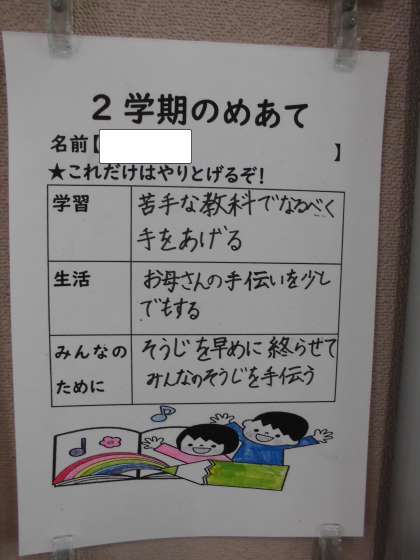 2学期のめあて
名前【 】
★これだけはやりとげるぞ!
学習
苦手な教科でなるべく
手をあげる
生活
お母さんの手伝いを少し
でもする
みんなの
ために
そうじを早めに終らせて
みんなのそうじを手伝う